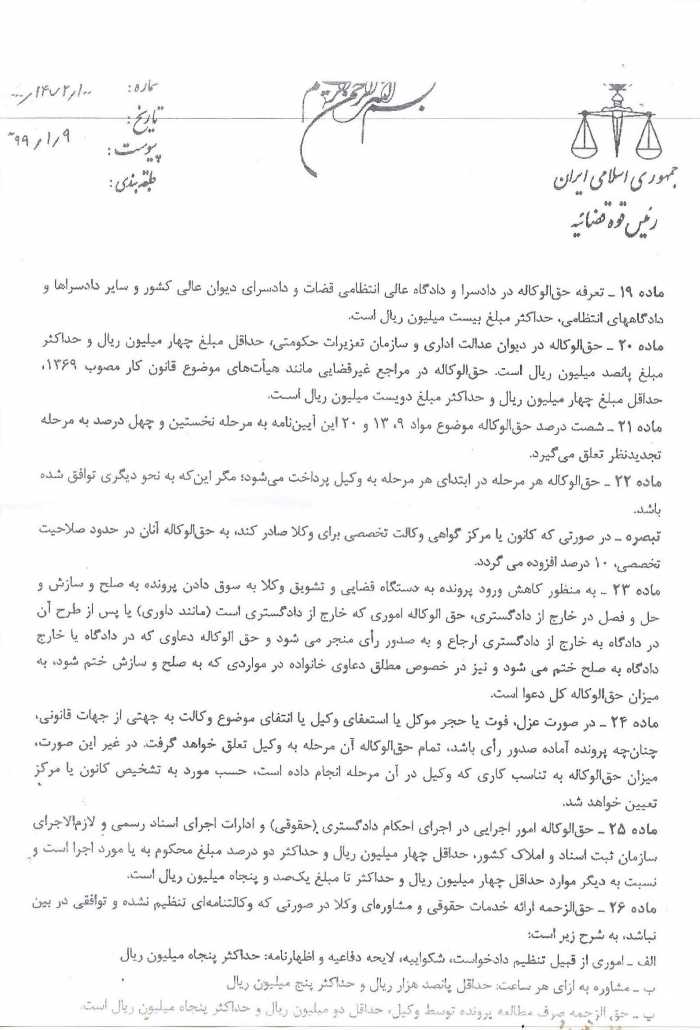 بسم الله الرحمن الرحیم
جمهوری اسلامی ایران
رئیس قوه قضائیه
شماره: ۱۰۰/۱۴۰۷۲/۹۰۰۰
تاریخ: ۹۹/۱/۹
پیوست:
طبقه‌بندی:
ماده ۱۹ ـ تعرفه حق‌الوکاله در دادسرا و دادگاه عالی انتظامی قضات و دادسرای دیوان عالی کشور و سایر دادسراها و
دادگاههای انتظامی، حداکثر مبلغ بیست میلیون ریال است.
ماده ۲۰ ـ حق‌الوکاله در دیوان عدالت اداری و سازمان تعزیرات حکومتی، حداقل مبلغ چهار میلیون ریال و حداکثر
مبلغ پانصد میلیون ریال است. حق‌الوکاله در مراجع غیرقضایی مانند هیأت‌های موضوع قانون کار مصوب ۱۳۶۹،
حداقل مبلغ چهار میلیون ریال و حداکثر مبلغ دویست میلیون ریال است.
ماده ۲۱ ـ شصت درصد حق‌الوکاله موضوع مواد ۹، ۱۳ و ۲۰ این آیین‌نامه به مرحله نخستین و چهل درصد به مرحله
تجدیدنظر تعلق می‌گیرد.
ماده ۲۲ ـ حق‌الوکاله هر مرحله در ابتدای هر مرحله به وکیل پرداخت می‌شود؛ مگر این‌که به نحو دیگری توافق شده
باشد.
تبصره ـ در صورتی که کانون یا مرکز گواهی وکالت تخصصی برای وکلا صادر کند، به حق‌الوکاله آنان در حدود صلاحیت
تخصصی، ۱۰ درصد افزوده می گردد.
ماده ۲۳ ـ به منظور کاهش ورود پرونده به دستگاه قضایی و تشویق وکلا به سوق دادن پرونده به صلح و سازش و
حل و فصل در خارج از دادگستری، حق الوکاله اموری که خارج از دادگستری است (مانند داوری) یا پس از طرح آن
در دادگاه به خارج از دادگستری ارجاع و به صدور رأی منجر می شود و حق الوکاله دعاوی که در دادگاه یا خارج
دادگاه به صلح ختم می شود و نیز در خصوص مطلق دعاوی خانواده در مواردی که به صلح و سازش ختم شود، به
میزان حق‌الوکاله کل دعوا است.
ماده ۲۴ ـ در صورت عزل، فوت یا حجر موکل یا استعفای وکیل یا انتفای موضوع وکالت به جهتی از جهات قانونی،
چنان‌چه پرونده آماده صدور رأی باشد، تمام حق‌الوکاله آن مرحله به وکیل تعلق خواهد گرفت. در غیر این صورت،
میزان حق‌الوکاله به تناسب کاری که وکیل در آن مرحله انجام داده است، حسب مورد به تشخیص کانون یا مرکز
تعیین خواهد شد.
ماده ۲۵ ـ حق‌الوکاله امور اجرایی در اجرای احکام دادگستری (حقوقی) و ادارات اجرای اسناد رسمی و لازم‌الاجرای
سازمان ثبت اسناد و املاک کشور، حداقل چهار میلیون ریال و حداکثر دو درصد مبلغ محکوم به یا مورد اجرا است و
نسبت به دیگر موارد حداقل چهار میلیون ریال و حداکثر تا مبلغ یک‌صد و پنجاه میلیون ریال است.
ماده ۲۶ ـ حق‌الزحمه ارائه خدمات حقوقی و مشاوره‌ای وکلا در صورتی که وکالتنامه‌ای تنظیم نشده و توافقی در بین
نباشد، به شرح زیر است:
الف ـ اموری از قبیل تنظیم دادخواست، شکواییه، لایحه دفاعیه و اظهارنامه: حداکثر پنجاه میلیون ریال
ب ـ مشاوره به ازای هر ساعت: حداقل پانصد هزار ریال و حداکثر پنج میلیون ریال
پ ـ حق الزحمه صرف مطالعه پرونده توسط وکیل، حداقل دو میلیون ریال و حداکثر پنجاه میلیون ریال است.